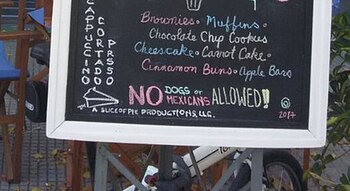 CAPPUCCINO
CORTADO
PASSO
Brownies • Muffins •
Chocolate Chip Cookies
Cheesecake • Carrot Cake •
Cinnamon Buns • Apple Bars
NO DOGS or MEXICANS ALLOWED!!
A SLICE OF PIE PRODUCTIONS, LLC.
2017